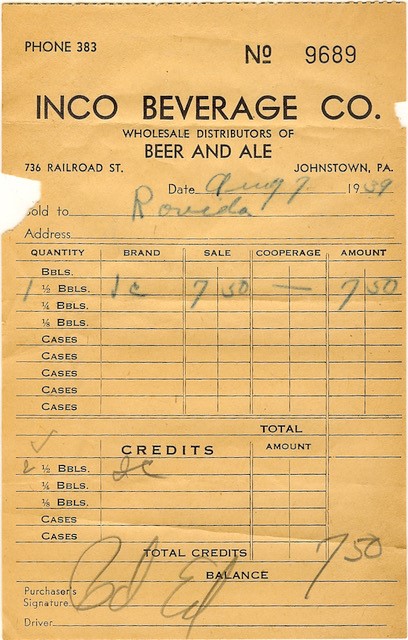 PHONE 383
Nº 9689
INCO BEVERAGE CO.
WHOLESALE DISTRIBUTORS OF
BEER AND ALE
736 RAILROAD ST. JOHNSTOWN, PA.
Date Aug 7 1939
old to Roveda
Address
QUANTITY BRAND SALE COOPERAGE AMOUNT
BBLS.
1 ½ BBLS. IC 7 50 — 7 50
¼ BBLS.
⅛ BBLS.
CASES
CASES
CASES
CASES
CASES
TOTAL
CREDITS AMOUNT
2 ½ BBLS. IC
¼ BBLS.
⅛ BBLS.
CASES
CASES
TOTAL CREDITS
BALANCE 7 50
Purchaser's
Signature
Driver